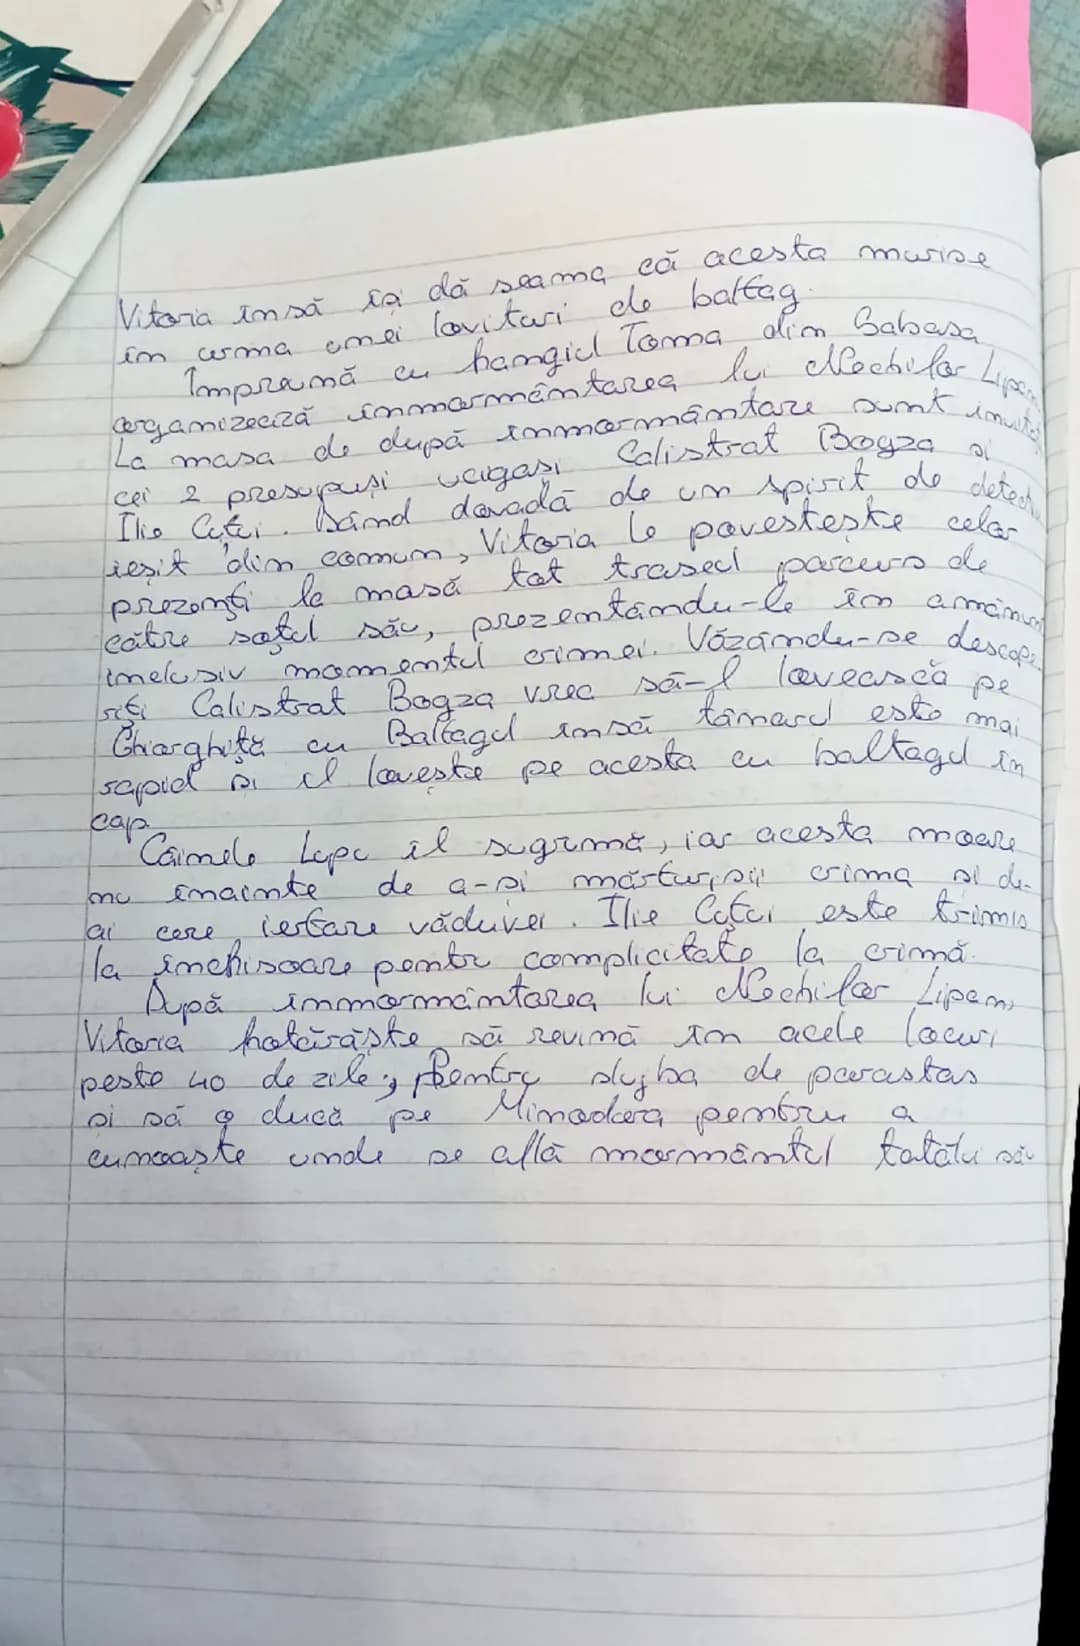 Vitoria însă își dă seama că acesta murise
în urma unei lovituri de baltag.
Împreună cu hangiul Toma din Sabasa
organizează înmormântarea lui Nechifor Lipan
La masa de după înmormântare sunt invitați
cei 2 presupuși ucigași Calistrat Bogza și
Ilie Cuțui. Dând dovadă de un spirit de detectiv
ieșit din comun, Vitoria le povestește celor
prezenți la masă tot traseul parcurs de
către soțul său, prezentându-le în amănunt
inclusiv momentul crimei. Văzându-se descope-
riți Calistrat Bogza vrea să-l lovească pe
Ghiorghiță cu Baltagul însă tânarul este mai
rapid și îl lovește pe acesta cu baltagul în
cap.
Câinele Lupu îl sugrumă, iar acesta moare
nu înainte de a-și mărturisii crima și de-
ai cere iertare văduvei. Ilie Cuțui este trimis
la închisoare pentru complicitate la crimă.
După înmormântarea lui Nechifor Lipan,
Vitoria hotărăște să revină în acele locuri
peste 40 de zile, pentru slujba de parastas
și să o ducă pe Minodora pentru a
cunoaște unde se află mormântul tatălu său